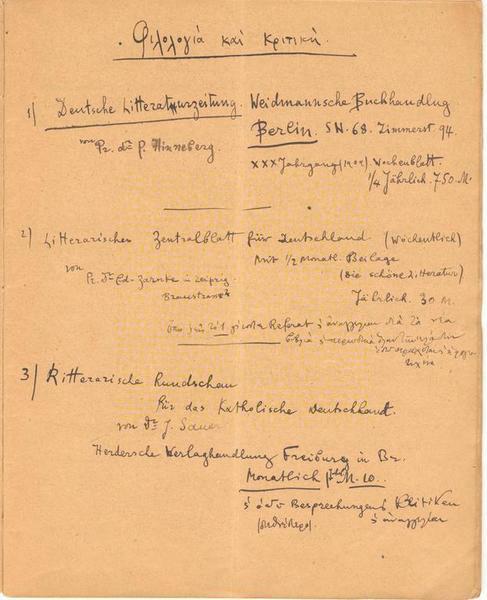 Φιλολογία καὶ Κριτική.
1) Deutsche Litteraturzeitung. Weidmannsche Buchhandlug
Berlin. SW. 68. Zimmerst 94
von Pr. Dr P. Hinneberg.
XXX Jahrgang (1909). Wochenblatt.
1/4 Jährlich. 7.50 M.
2) Litterarisches Zentralblatt für Deutschland (Wöchentlich)
von
Pr. Dr Ed. Zarnke in Leipzig.
Mit 1/2 Monatl. Beilage
(Die schöne Litteratur)
Jährlich. 30 M.
Referat
διὰ τὰ
3) Litterarische Rundschau
für das Katholische Deutschland.
von Dr J. Sauer
Herdersche Verlaghandlung Freiburg in Br.
Monatlich M. 10.
Besprechungens Kritiken